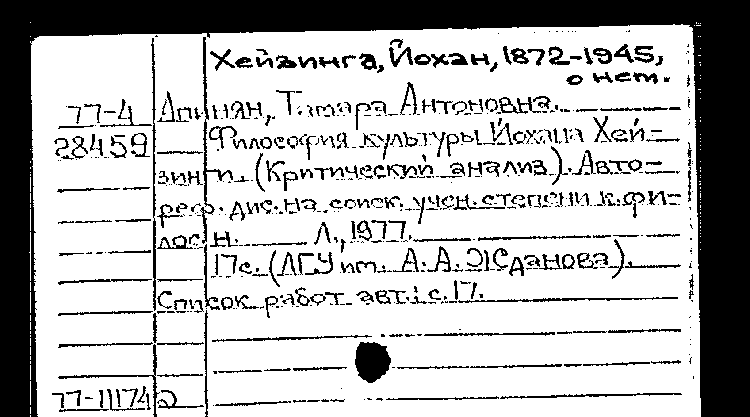 Хейзинга, Йохан, 1872-1945,
о нем.
77-4 Апинян, Тамара Антоновна.
28459 Философия культуры Йохана Хей-
зинги. (Критический анализ). Авто-
реф. дис. на соиск. учен. степени к. фи-
лос. н. Л., 1977.
17с. (ЛГУ им. А. А. Жданова).
Список работ авт.: с. 17.
77-11174